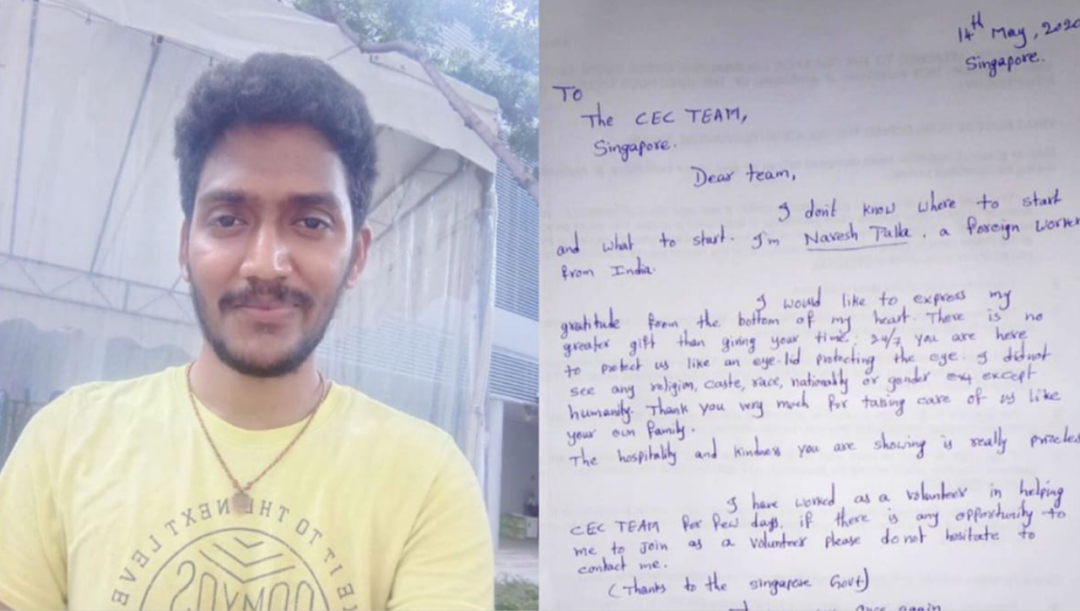 14th May, 2020
Singapore.
To
The CEC TEAM,
Singapore.
Dear team,
I don't know where to start
and what to start. I'm Navesh
, a foreign worker
from India.
I would like to express my
gratitude from the bottom of my heart. There is no
greater gift than giving your time. 24/7 you are here
to protect us like an eye-lid protecting the eye. I didnot
see any religion, caste, race, nationality or gender except
humanity. Thank you very much for taking care of us like
your own family.
The hospitality and kindness you are showing is really
I have worked as a volunteer in helping
CEC TEAM for few days, if there is any opportunity to
me to join as a volunteer please donot hesitate to
contact me.
(Thanks to the singapore Govt)
once again
IT TO THE NEXT LEVE
DOMYOS